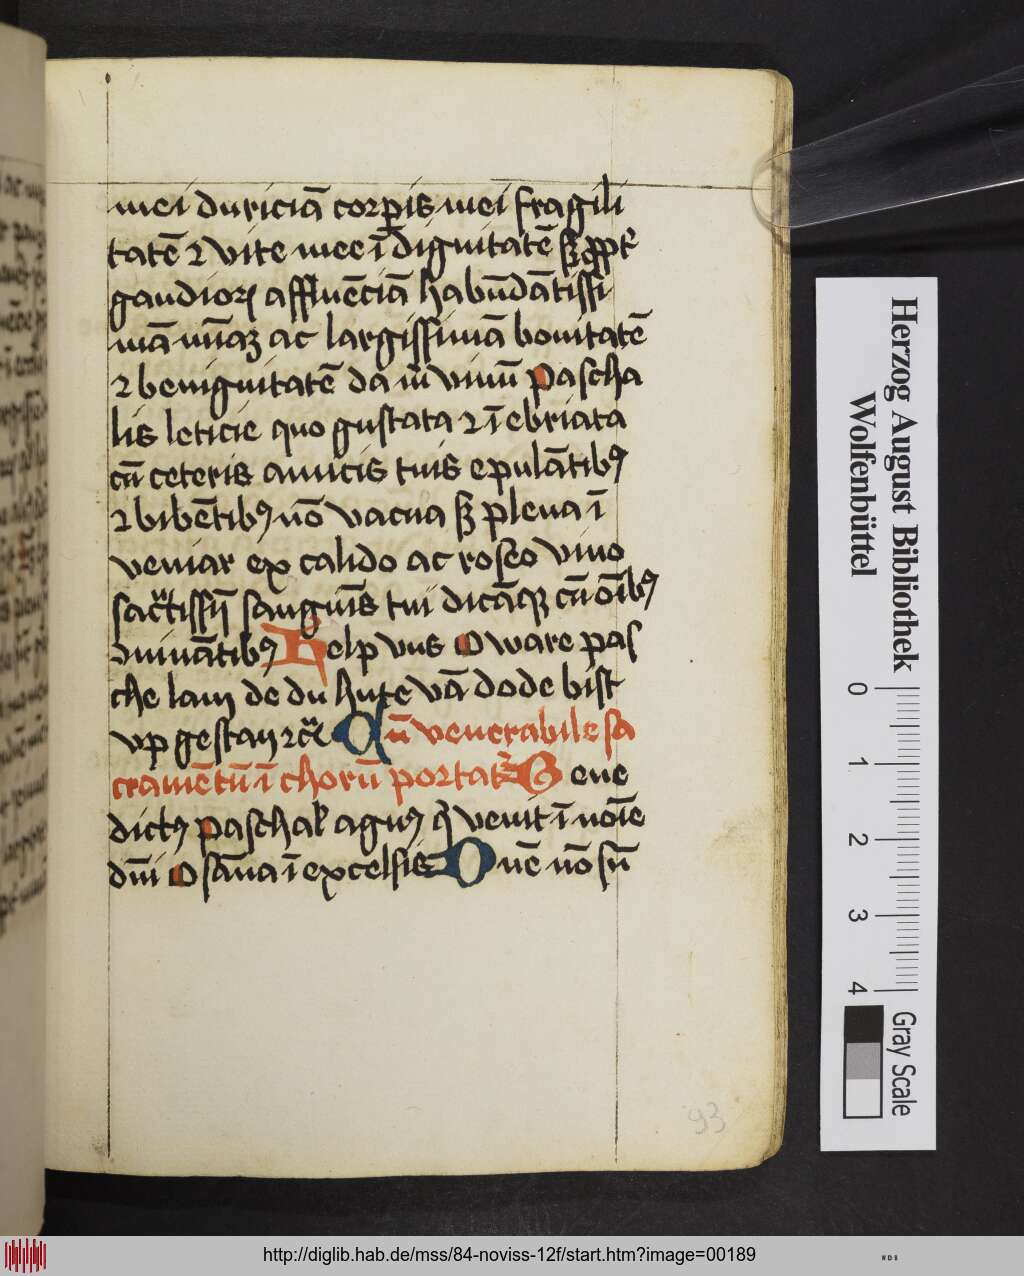 mei duriciā corꝑis mei fragili
tatē ⁊ vite mee īdignitatē sꝫ ꝓpt̄
gaudioꝝ affluēciā habūdātissi
mā nimiā ac largissimā bonitatē
⁊ benignitatē da m̄ vinū pascha
lis leticie quo gustata ⁊ īebriata
cū ceteris amicis tuis epulātibꝰ
⁊ bibētibꝰ nō vacua sꝫ plena ī
veniar ex calido ac roseo vino
sac̄tissī sanguīs tui dicāqꝫ cū oībꝰ
iuuātibꝰ Help vns O ware pas
che lam de du hute vā dode bist
vp gestan ⁊c̄ Qn̄ venerabile sa
cramētū ī chorū portat̄ Bene
dictꝰ paschal̄ agnꝰ q̄ venit ī noīe
dn̄i Osāna ī excelsis One nō sū
93
Herzog August Bibliothek
Wolfenbüttel
0 1 2 3 4
Gray Scale
http://diglib.hab.de/mss/84-noviss-12f/start.htm?image=00189